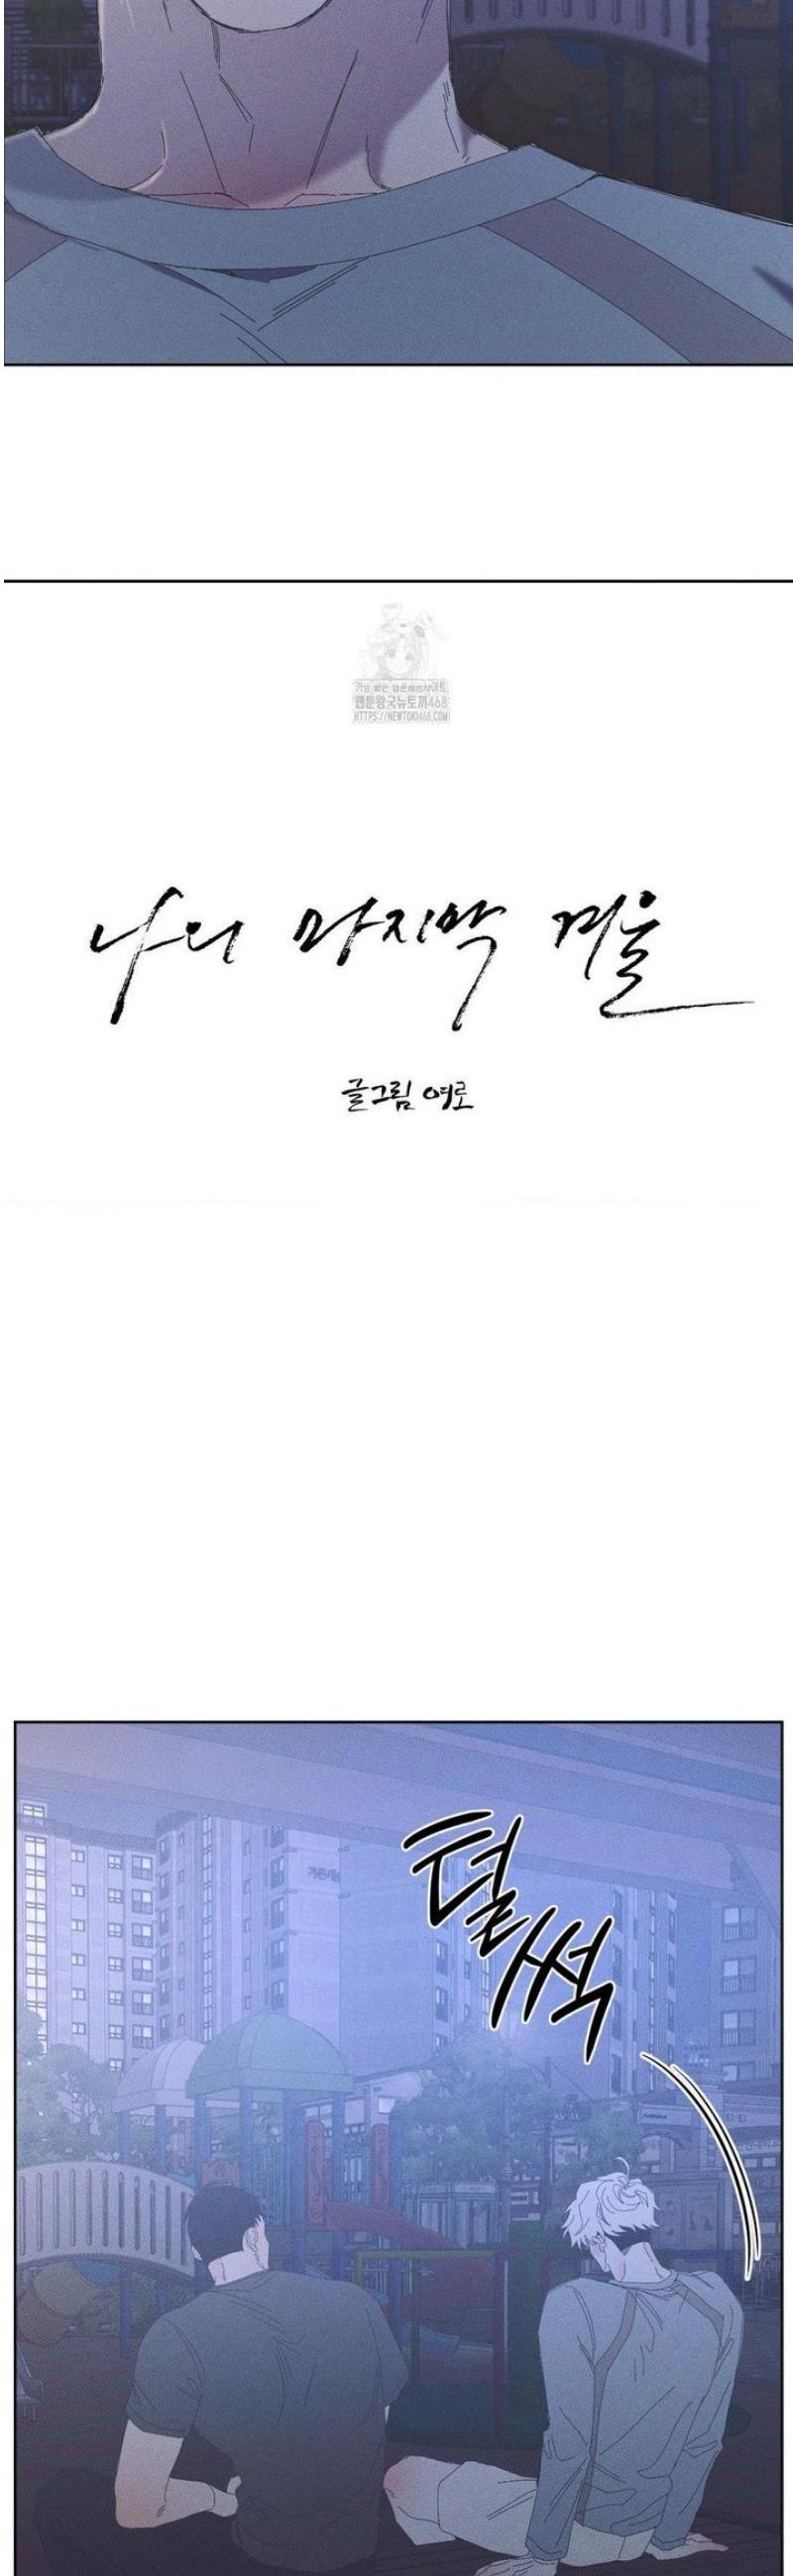 가장 빠른 웹툰제공사이트
웹툰왕국뉴토끼468
HTTPS://NEWTOKI468.COM
나의 마지막 겨울
글그림 여로
털썩